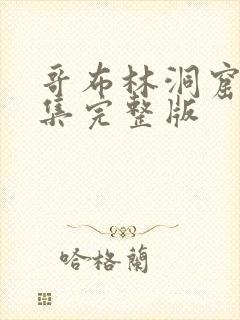 哥布林洞窟
集完整版
哈格蘭